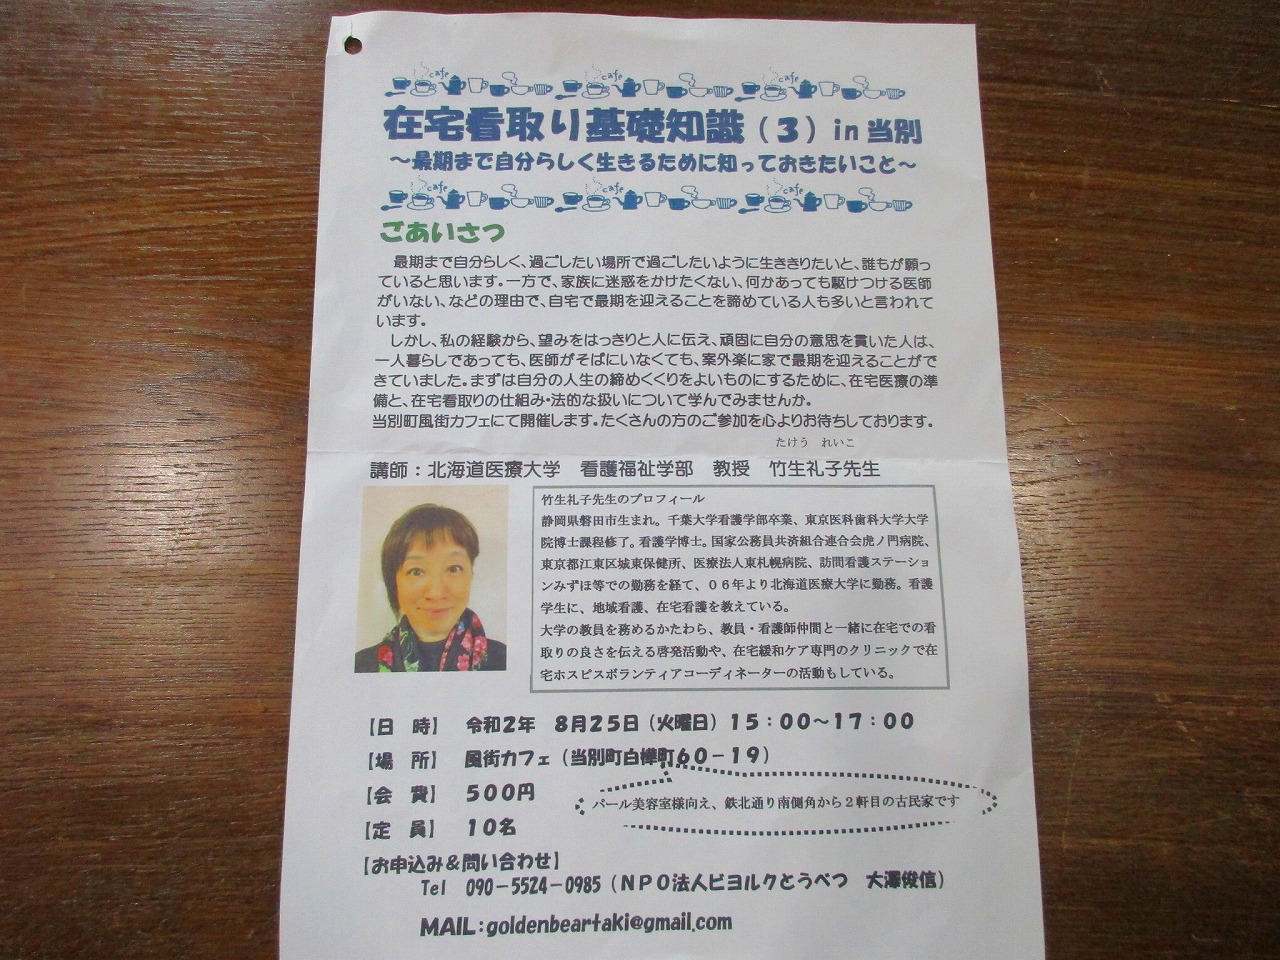 cafe cafe cafe
在宅看取り基礎知識（３）in 当別
～最期まで自分らしく生きるために知っておきたいこと～
cafe cafe cafe
ごあいさつ
最期まで自分らしく、過ごしたい場所で過ごしたいように生ききりたいと、誰もが願っ
ていると思います。一方で、家族に迷惑をかけたくない、何かあっても駆けつける医師
がいない、などの理由で、自宅で最期を迎えることを諦めている人も多いと言われて
います。
しかし、私の経験から、望みをはっきりと人に伝え、頑固に自分の意思を貫いた人は、
一人暮らしであっても、医師がそばにいなくても、案外楽に家で最期を迎えることがで
きていました。まずは自分の人生の締めくくりをよいものにするために、在宅医療の準
備と、在宅看取りの仕組み・法的な扱いについて学んでみませんか。
当別町風街カフェにて開催します。たくさんの方のご参加を心よりお待ちしております。
たけう　れいこ
講師：北海道医療大学　看護福祉学部　教授　竹生礼子先生
竹生礼子先生のプロフィール
静岡県磐田市生まれ。千葉大学看護学部卒業、東京医科歯科大学大学
院博士課程修了。看護学博士。国家公務員共済組合連合会虎ノ門病院、
東京都江東区城東保健所、医療法人東札幌病院、訪問看護ステーショ
ンみずほ等での勤務を経て、０６年より北海道医療大学に勤務。看護
学生に、地域看護、在宅看護を教えている。
大学の教員を務めるかたわら、教員・看護師仲間と一緒に在宅での看
取りの良さを伝える啓発活動や、在宅緩和ケア専門のクリニックで在
宅ホスピスボランティアコーディネーターの活動もしている。
【日　時】　令和２年　８月２５日（火曜日）１５：００～１７：００
【場　所】　風街カフェ（当別町白樺町６０－１９）
【会　費】　５００円
パール美容室様向え、鉄北通り南側角から２軒目の古民家です
【定　員】　１０名
【お申込み＆問い合わせ】
Tel　090－5524－0985（ＮＰＯ法人ビヨルクとうべつ　大澤俊信）
MAIL：goldenbeartaki@gmail.com